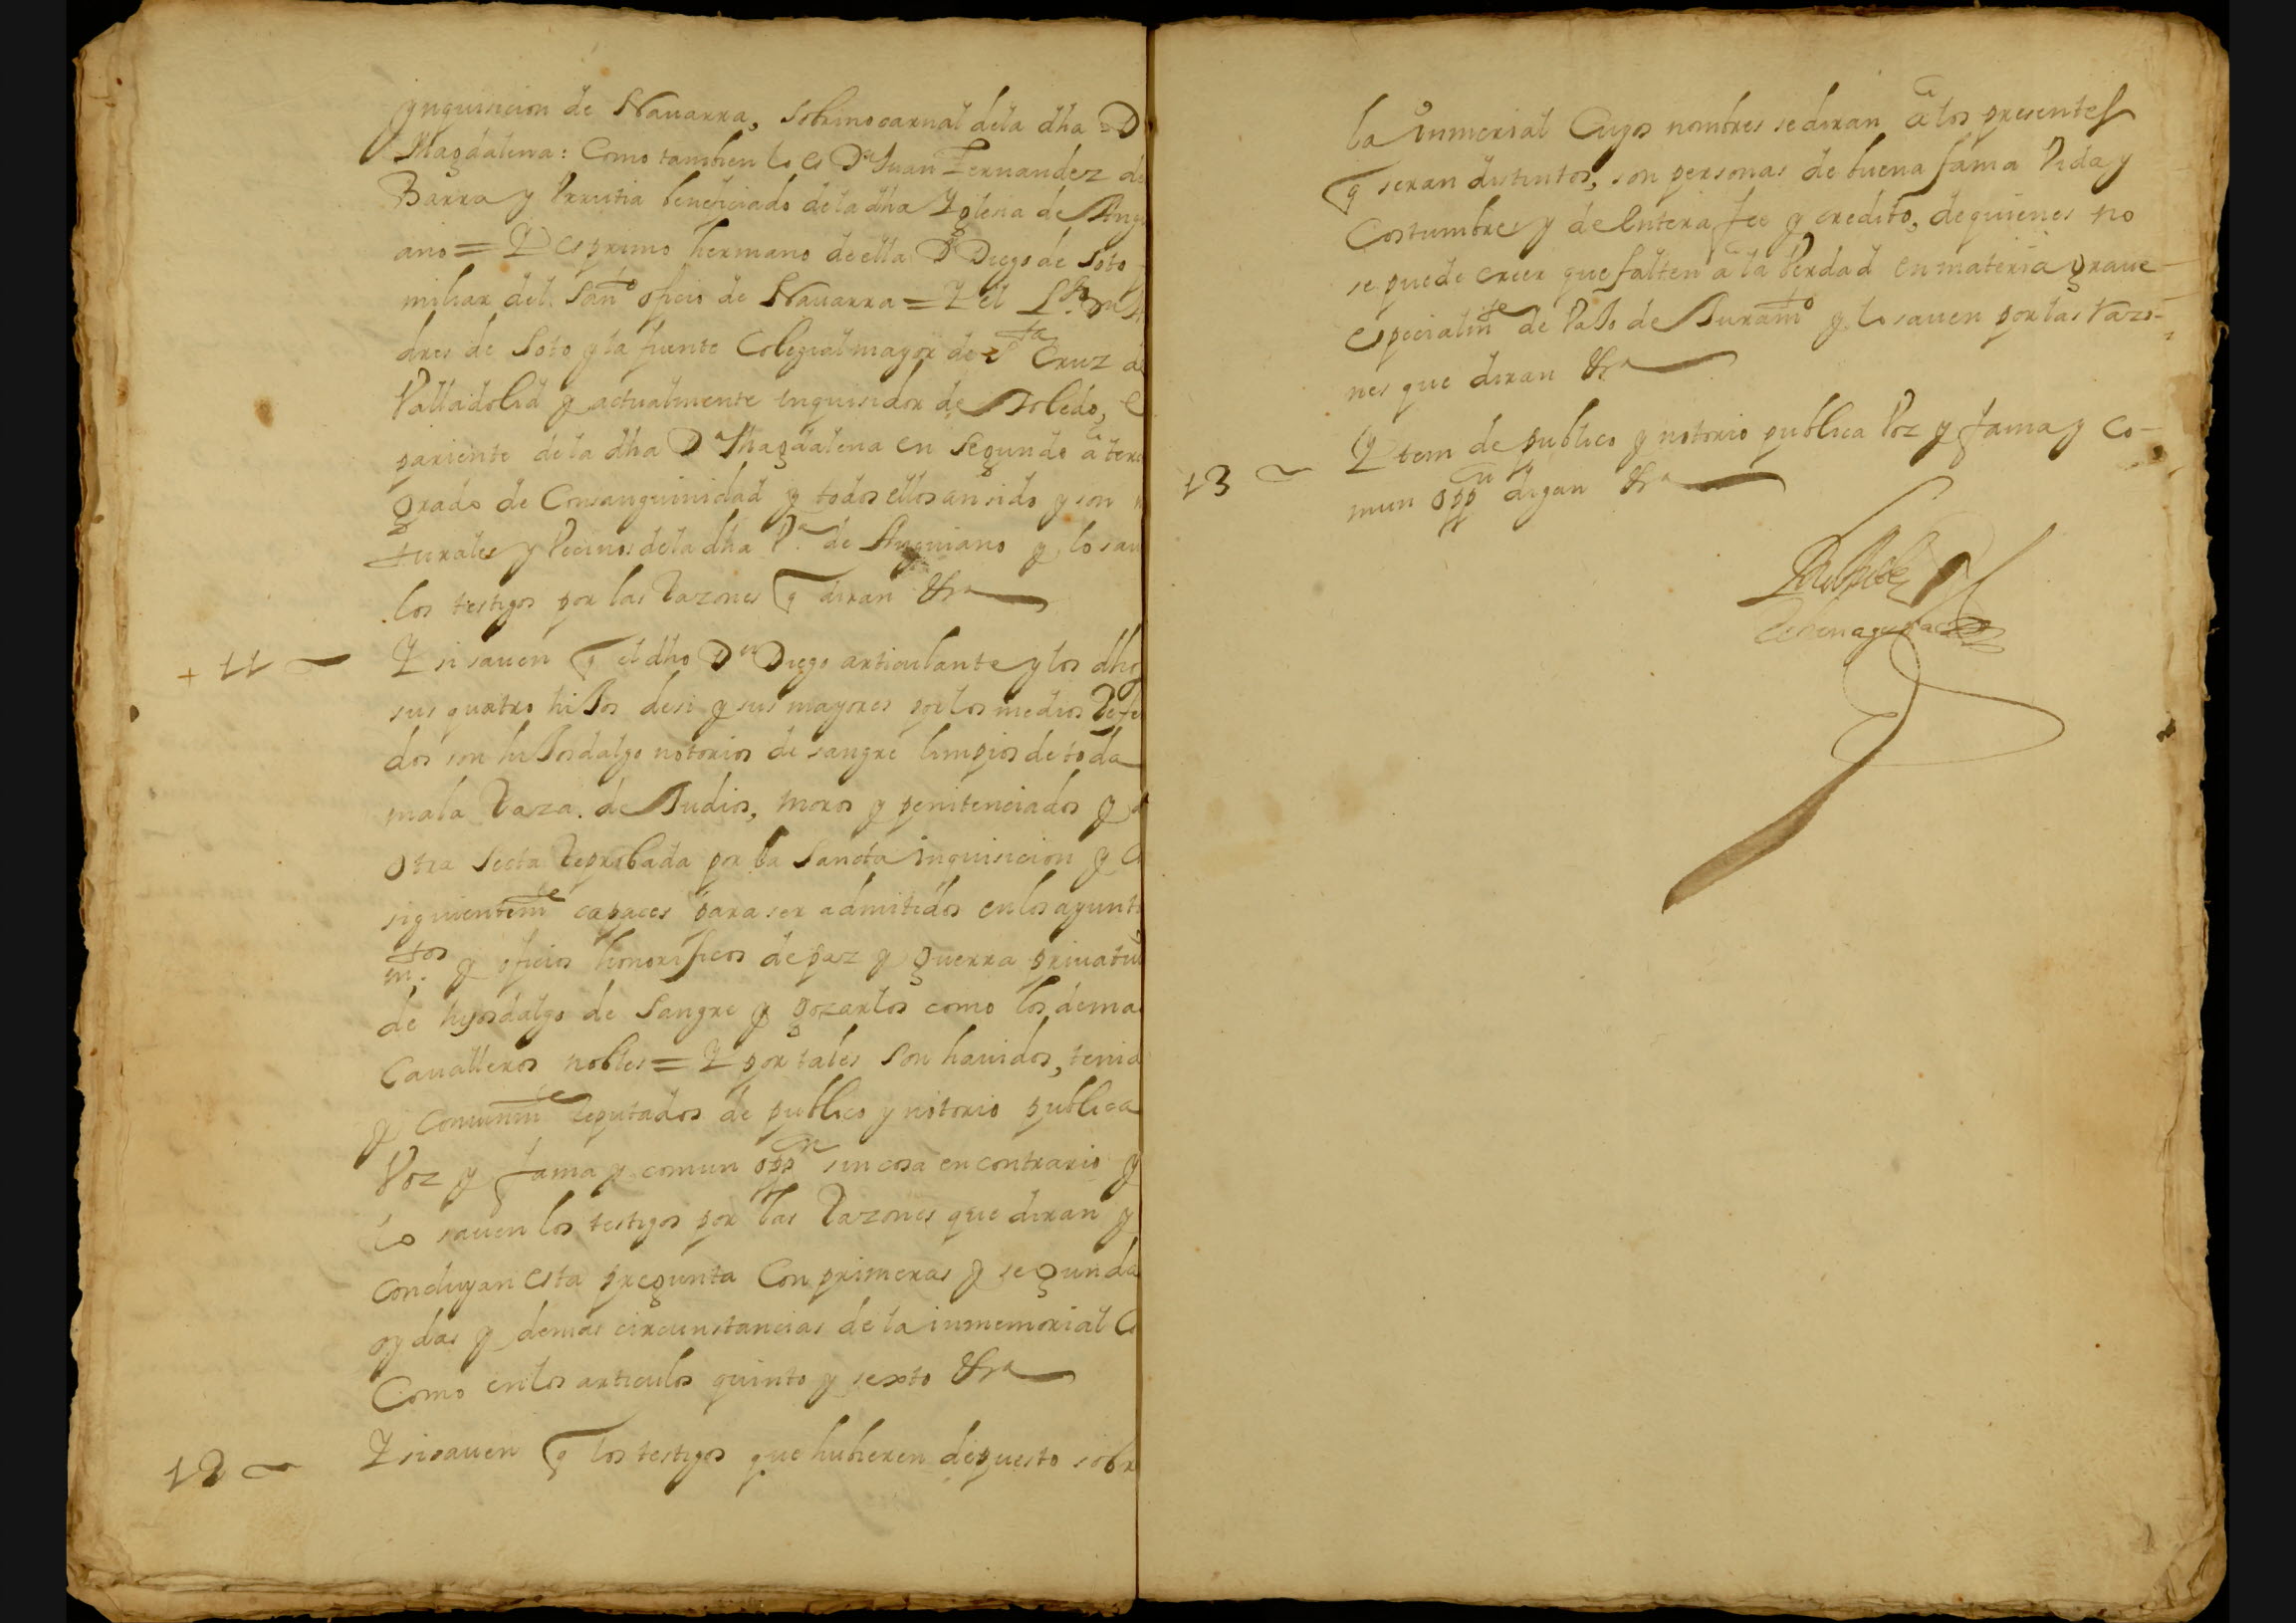 ynquisicion de Nauarra, sobrino carnal dela dha D
Magdalena: Como tambien lo es Dn Juan Fernandez de
Barra y Vrrutia beneficiado dela dha Yglesia de Angu
ano = Y es primo hermano de ella D Diego de Soto
miliar del santo oficio de Nauarra = Y el
dres de Soto y la fuente Colegial mayor de sta Cruz de
Valladolid y actualmente Inquisidor de Toledo, e
pariente dela dha Da Magdalena en segundo a terc
grado de Consanguinidad y todos ellos an sido y son n
turales y Vecinos dela dha Va de Anguiano y lo sau
los testigos por las Razones q diran &ra
+ 11 Y si sauen q el dho Dn Diego articulante y los dho
sus quatro hiJos desi y sus mayores por los medios Refe
dos son hiJosdalgo notorios de sangre limpios de toda
mala Raza. de Judios, moros y penitenciados y d
otra Secta Reprobada por la Sancta inquisicion y C
siguientemte capaces para ser admitidos en los ayunta
mtos y oficios honorificos de paz y guerra priuatiu
de hijosdalgo de Sangre y gozarlos como los dema
Caualleros nobles = Y por tales son hauidos, tenid
y Comunmte Reputados de publico y notorio publica
Voz y fama y comun oppn sin cosa en contrario y
lo sauen los testigos por las Razones que diran y
concluyan esta pregunta Con primeras y segunda
oydas y demas circunstancias de la inmemorial C
Como en los articulos quinto y sexto &ra
12 Y si sauen q los testigos que hubieren depuesto sobr
la inmerial Cuyos nombres se diran a los presentes
q seran distintos, son personas de buena fama Vida y
Costumbres y de entera fee y credito, de quienes no
se puede creer que falten a la berdad en materia graue
especialmte de VaJo de Juramto y lo sauen por las Razo-
nes que diran &ra
13 Ytem de publico y notorio publica Voz y fama y co-
mun oppn digan &ra